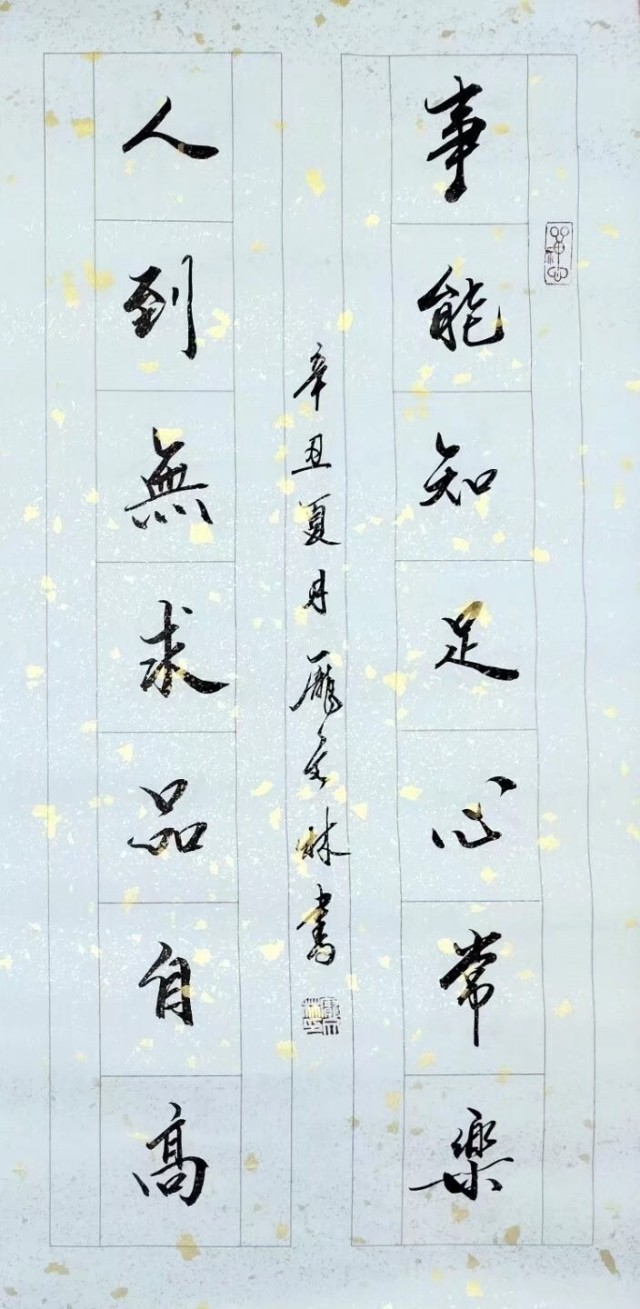 事能知足心常樂
人到無求品自高
辛丑夏月龐文林書